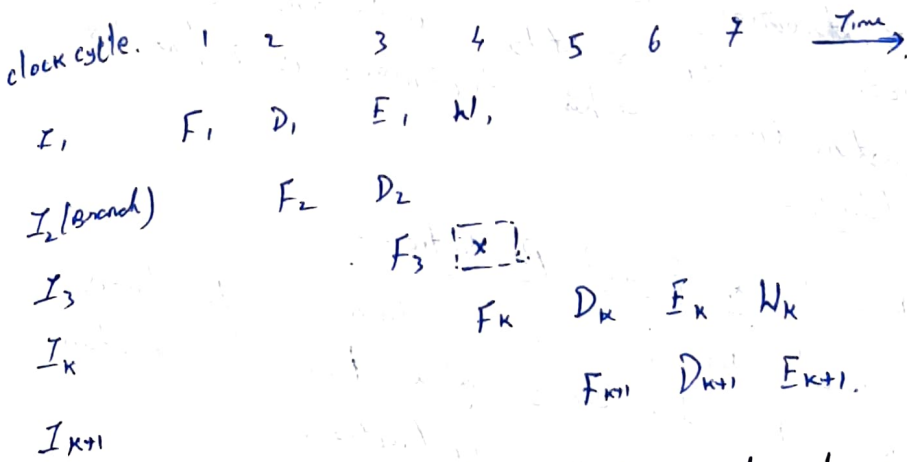 clock cycle. 1 2 3 4 5 6 7 Time
I₁ F₁ D₁ E₁ W₁
I₂ (Branch) F₂ D₂
I₃ F₃ x
Iₖ Fₖ Dₖ Eₖ Wₖ
Iₖ₊₁ Fₖ₊₁ Dₖ₊₁ Eₖ₊₁.